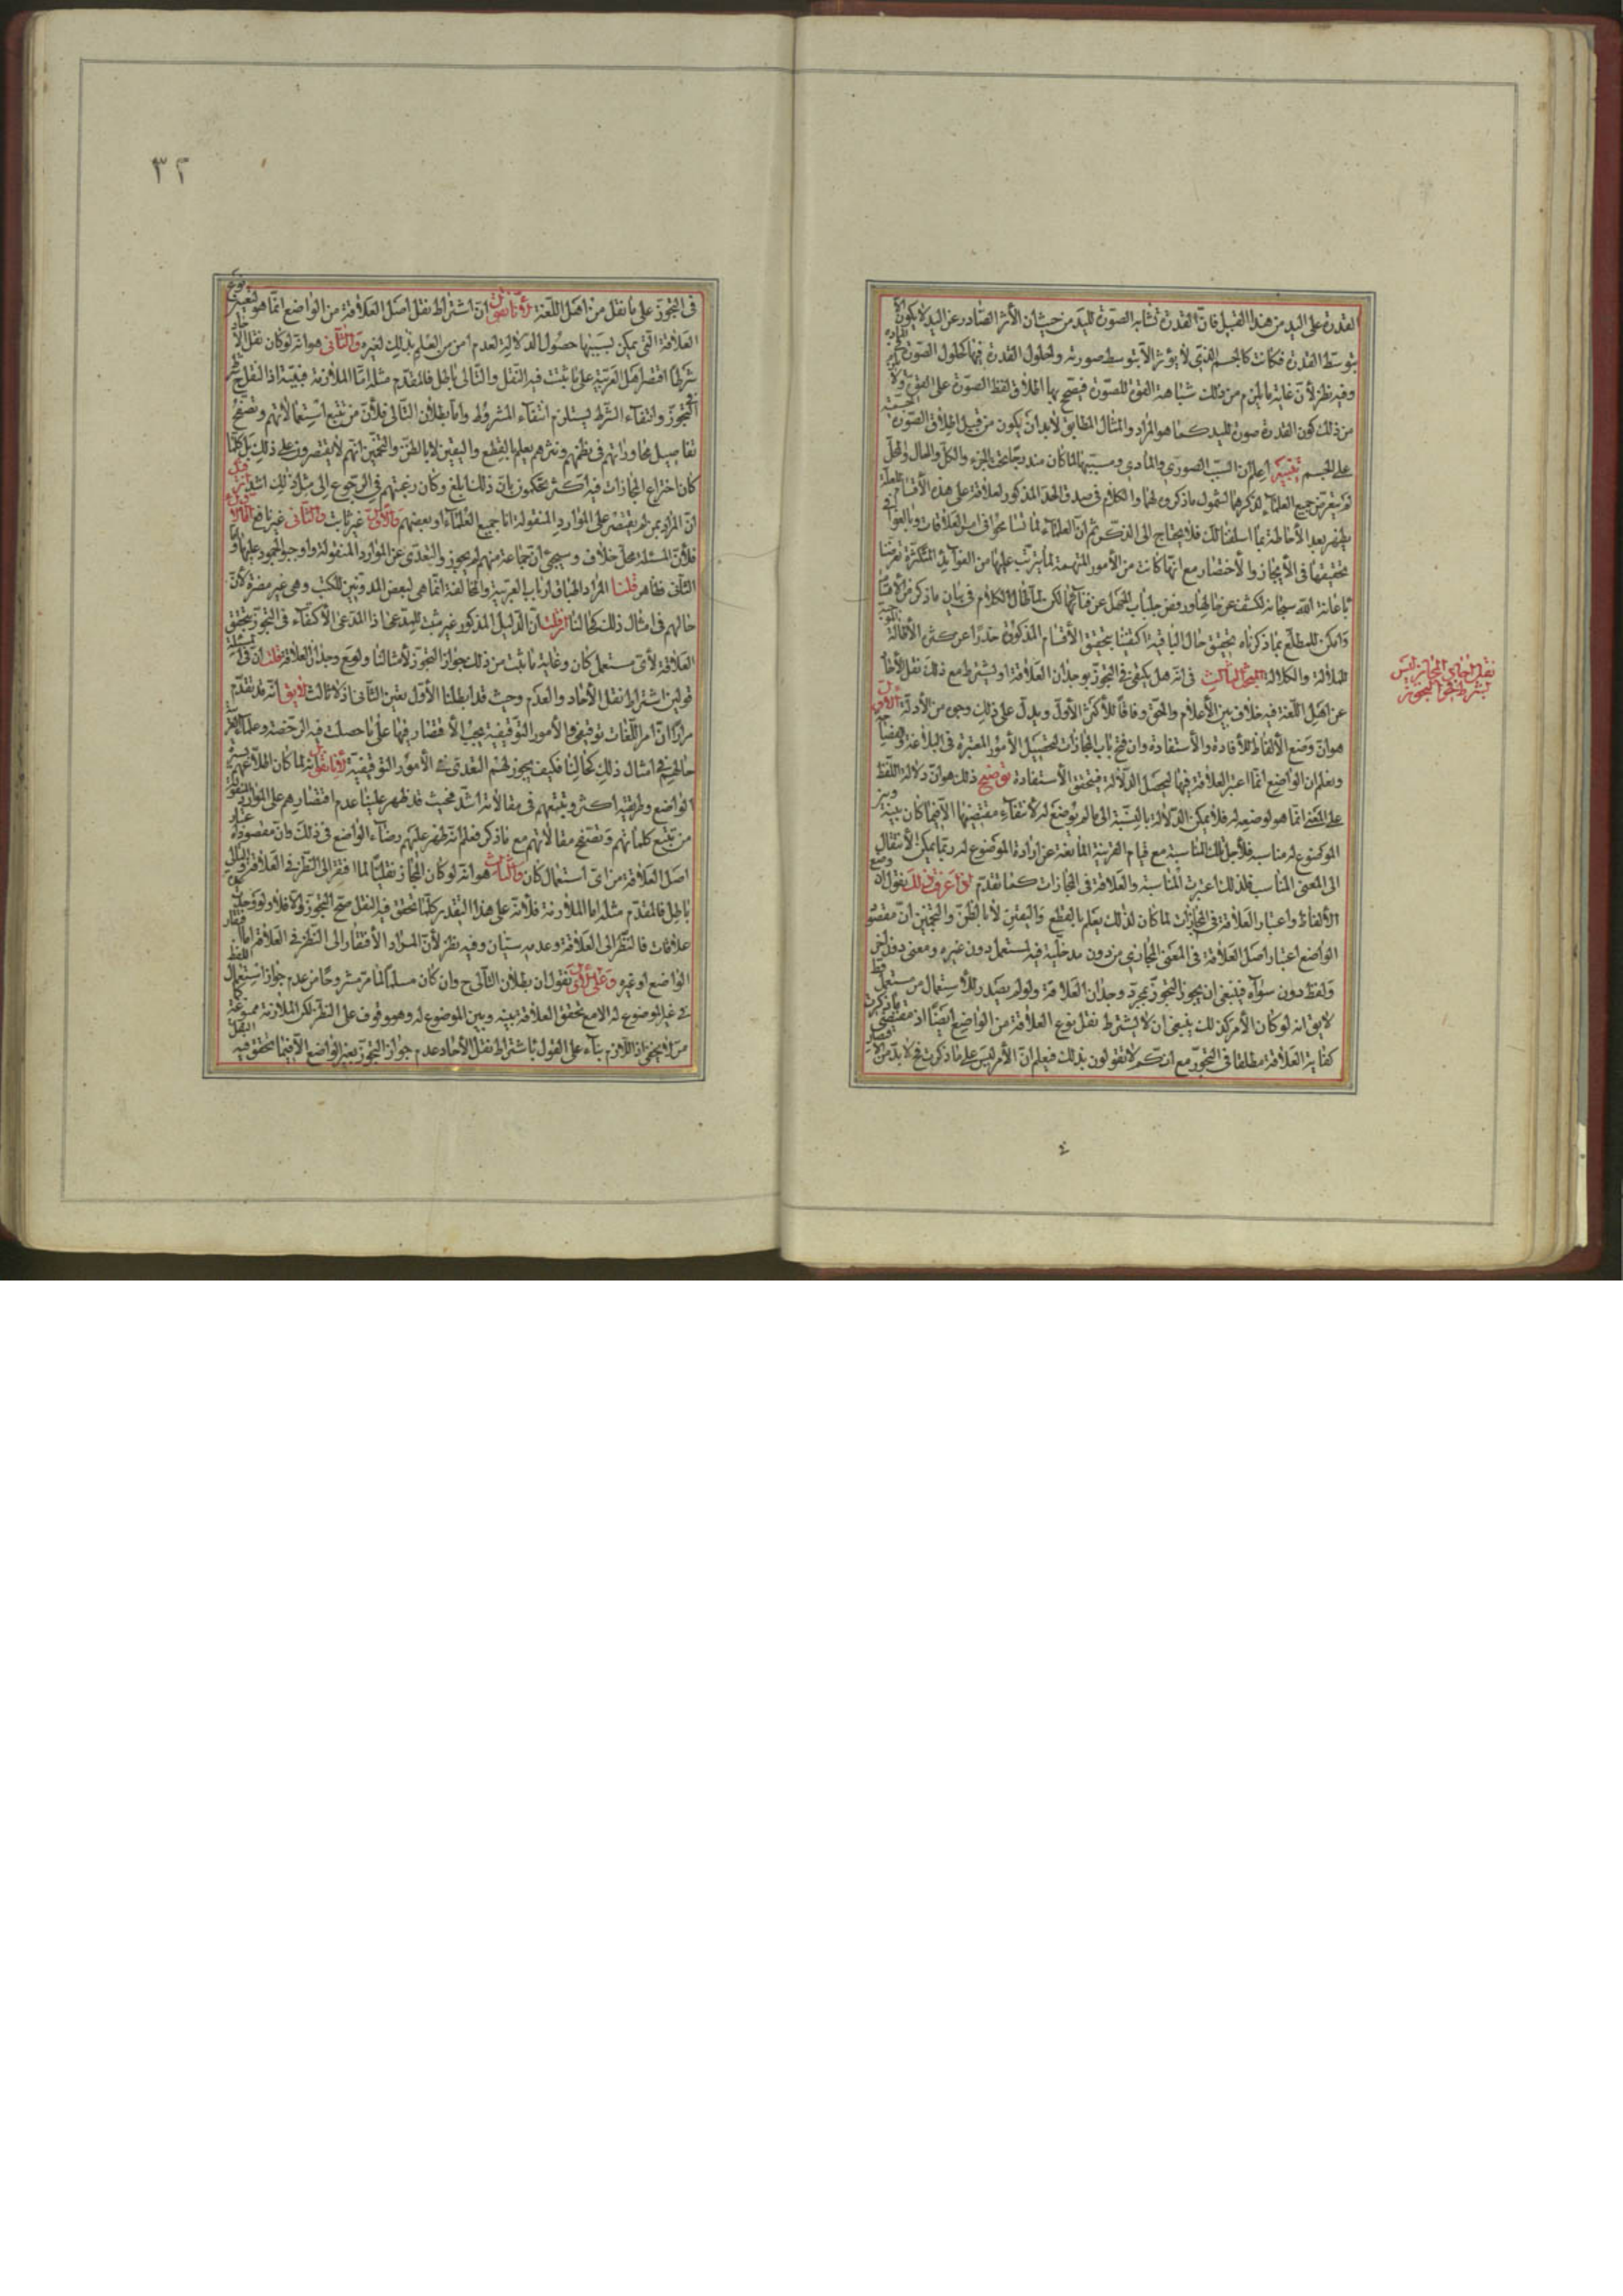 القدرة على اليد من هذا القبيل فان القدرة تشابه الصورة لليد من حيث ان الأثر الصادر عن اليد لا يكون الا
بتوسط القدرة فكانت كالجسم الذي لا يؤثر الا بتوسط صورته ولحلول القدرة فيها كحلول الصورة في المادة
وفيه نظر لأن غاية ما يلزم من ذلك شباهة القوة للصورة فيصح بها اطلاق لفظ الصورة على القوة ولا
من ذلك كون القدرة صورة لليد كما هو المراد والمثال المطابق لا بد ان يكون من قبيل اطلاق الصورة
على الجسم تنبيه اعلم ان السبب الصوري والمادي ومسببهما لما كان مندرجا تحت الجزء والكل والحال والمحل
لم يتعرض جميع العلماء لذكرهما لشمول ما ذكروه لهما والكلام في صدق الحد المذكور لعلاقة على هذه الأقسام
يظهر بعد الأحاطة بما اسلفنا لك فلا يحتاج الى الذكر ثم ان العلماء لما تسامحوا في باب العلاقات وبالغوا في
تحقيقها في الأيجاز والأختصار مع انها كانت من الأمور المهمة لما يترتب عليها من الفوائد المتكثرة تعرضنا
باعانة الله سبحانه لكشف عن حالها ورفض جلباب المجمل عن قناتها لكن لما طال الكلام في بيان ما ذكر من الاقسام
وامكن للمطلع بما ذكرناه تحقيق حال الباقية اكتفينا بتحقيق الأقسام المذكورة حذرا عن كثرة الأطالة
للملالة والكلالة المبحث الثالث في انه هل يكتفى في التجوز بوجدان العلاقة او يشترط مع ذلك نقل الأحاد
نقل احاد المجاز ليس
بشرط في التجوز
عن اهل اللغة فيه خلاف بين الأعلام والحق وفاقا للأكثر الأول ويدل على ذلك وجوه من الأدلة الأول
هو ان وضع الألفاظ للأفادة والأستفادة وان فتح باب المجازات لتحصيل الأمور المعتبرة في البلاغة
ونعلم ان الواضع انما اعتبر العلاقة فيها ليحصل الدلالة فيتحقق الأستفادة توضيح ذلك هو ان دلالة اللفظ
على المعنى انما هو لوضعه له فلا يمكن الدلالة بالنسبة الى ما لم يوضع له لأنتفاء مقتضيها الا فيما كان بينه وبين
الموضوع له مناسبة فلأجل تلك المناسبة مع قيام القرينة المانعة عن ارادة الموضوع له ربما يمكن الأنتقال
الى المعنى المناسب فلذلك اعتبرت المناسبة والعلاقة في المجازات كما تقدم اذا عرفت ذلك نقول ان وضع
الألفاظ واعتبار العلاقة في المجازات لما كان لذلك يعلم بالقطع واليقين لا بالظن والتخمين ان مقصود
الواضع اعتبار اصل العلاقة في المعنى المجازي من دون مدخلية فيه لمستعمل دون غيره ومعنى دون اخر
ولفظ دون سواه فينبغي ان يجوز التجوز بمجرد وجدان العلاقة ولو لم يصدر للأستعمال من مستعمل قط
لا يق انه لو كان الأمر كذلك ينبغي ان لا يشترط نقل نوع العلاقة من الواضع ايضا اذ مقتضى ما ذكرت
كفاية العلاقة مطلقا في التجوز مع انكم لا تقولون بذلك فيعلم ان الأمر ليس على ما ذكرت فلا بد من الأقتصار
٤
٣٢
في التجوز على ما نقل من اهل اللغة لأنا نقول ان اشتراط نقل اصل العلاقة من الواضع انما هو لتعيين نوع
العلاقة التي يمكن بسببها حصول الدلالة لعدم امن من العلم بذلك لغيره والثاني هو انه لو كان نقل الأحاد
شرطا اقتصر اهل العربية على ما ثبت فيه النقل والتالي باطل فالمقدم مثله اما الملازمة فبينة اذ النقل ح شرط
التجوز وانتفاء الشرط يستلزم انتفاء المشروط واما بطلان التالي فلأن من تتبع استعمالاتهم وتصفح
تفاصيل محاوراتهم في نظمهم ونثرهم يعلم بالقطع واليقين لا بالظن والتخمين انهم لا يقتصرون على ذلك بل كلما
كان اختراع المجازات فيه اكثر يحكمون بان ذلك ابلغ وكان رغبتهم في الرجوع الى مثل ذلك اشد فان قيل
ان المراد بمن لم يقتصر على الموارد المنقولة اما جميع العلماء او بعضهم والأول غير ثابت والثاني غير نافع اما الأول
فلأن المسئلة محل خلاف وسيجئ ان جماعة منهم لم يجوزوا التعدي عن الموارد المنقولة واوجبوا الجمود عليها واما
الثاني فظاهر قلنا المراد اطباق ارباب العربية والمخالفة انما هي لبعض المدونين للكتب وهي غير مضرة لأن
حالهم في امثال ذلك كحالنا فان قلت ان الدليل المذكور غير مثبت للمدعى اذ المدعى الأكتفاء في التجوز بتحقق
العلاقة لأي مستعمل كان وغاية ما ثبت من ذلك جواز التجوز لأمثالنا ولو مع وجدان العلاقة قلت ان في المسئلة
قولين اشتراط نقل الأحاد والعدم وحيث قد ابطلنا الأول تعين الثاني اذ لا ثالث لا يق انه قد تقدم
مرارا ان امر اللغات توقيفي والأمور التوقيفية يجب الأقتصار فيها على ما حصلت فيه الرخصة وعلماء العربية
حالهم في امثال ذلك كحالنا فكيف يجوز لهم التعدي في الأمور التوقيفية لأنا نقول انه لما كان اطلاعهم بسيرة
الواضع وطريقته اكثر وتتبعهم في مقالاته اشد فحيث قد ظهر علينا عدم اقتصارهم على الموارد المنقولة
من تتبع كلماتهم وتصفح مقالاتهم مع ما ذكر فعلم انه ظهر عليهم رضاء الواضع في ذلك وان مقصوده اعتبار
اصل العلاقة من اي استعمال كان والثالث هو انه لو كان المجاز نقليا لما افتقر الى النظر في العلاقة والتالي
باطل فالمقدم مثله اما الملازمة فلأنه على هذا التقدير كلما تحقق فيه النقل صح التجوز والا فلا ولو وجدت
علاقات فالنظر الى العلاقة وعدمه سيان وفيه نظر لأن المراد الأفتقار الى النظر في العلاقة اما
الواضع او غيره وعلى الأول نقول ان بطلان التالي ح وان كان مسلما لما مر مشروحا من عدم جواز استعمال اللفظ
في غير الموضوع له الا مع تحقق العلاقة بينه وبين الموضوع له وهو موقوف على النظر لكن الملازمة ممنوعة
من لا يخفى اذ اللازم بناء على القول باشتراط نقل الأحاد عدم جواز التجوز بغير الواضع الا فيما تحقق فيه النقل